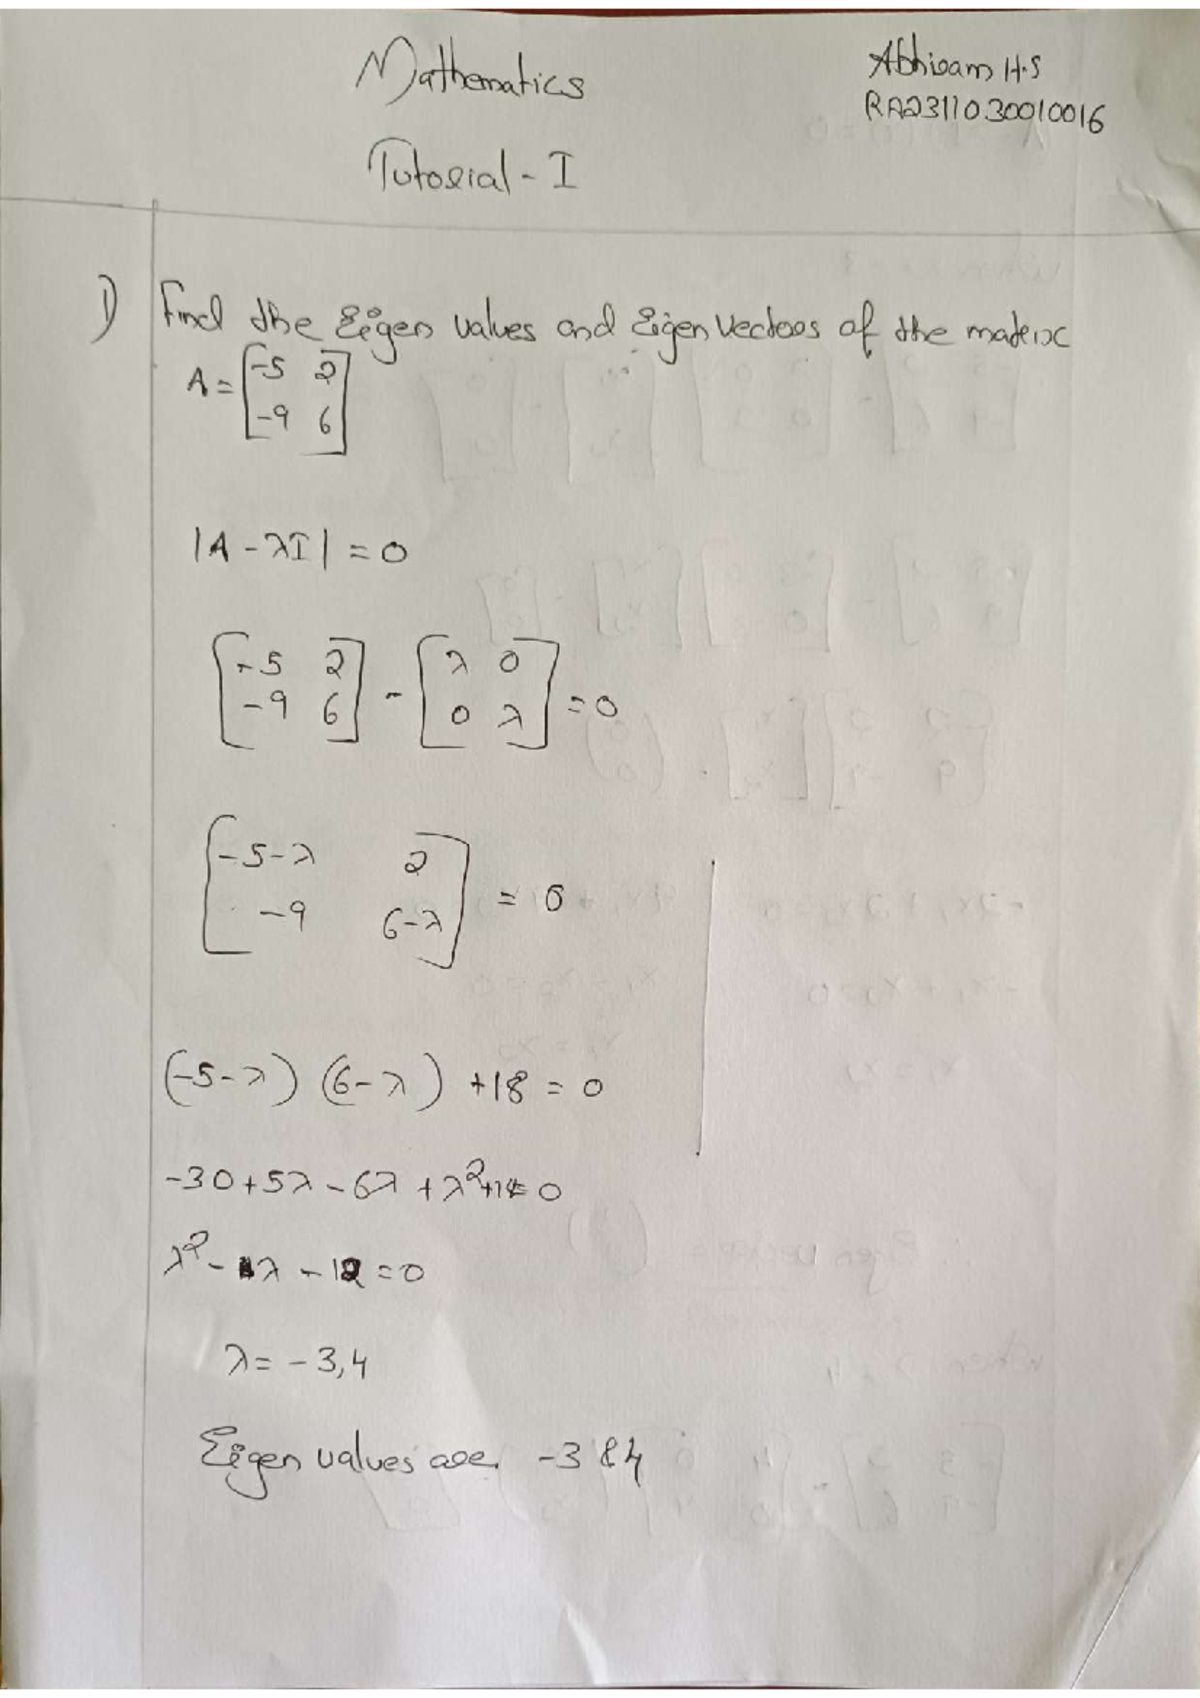 Mathematics
Abhiram H.S
RA2311030010016
Tutorial - I
1) Find the Eigen values and Eigen vectors of the matrix
A = [-5 2
-9 6]
|A - λI| = 0
[-5 2
-9 6] - [λ 0
0 λ] = 0
[-5-λ 2
-9 6-λ] = 0
(-5-λ) (6-λ) +18 = 0
-30+5λ-6λ+λ²+18=0
λ² - 1λ - 12 = 0
λ = -3,4
Eigen values are -3 & 4